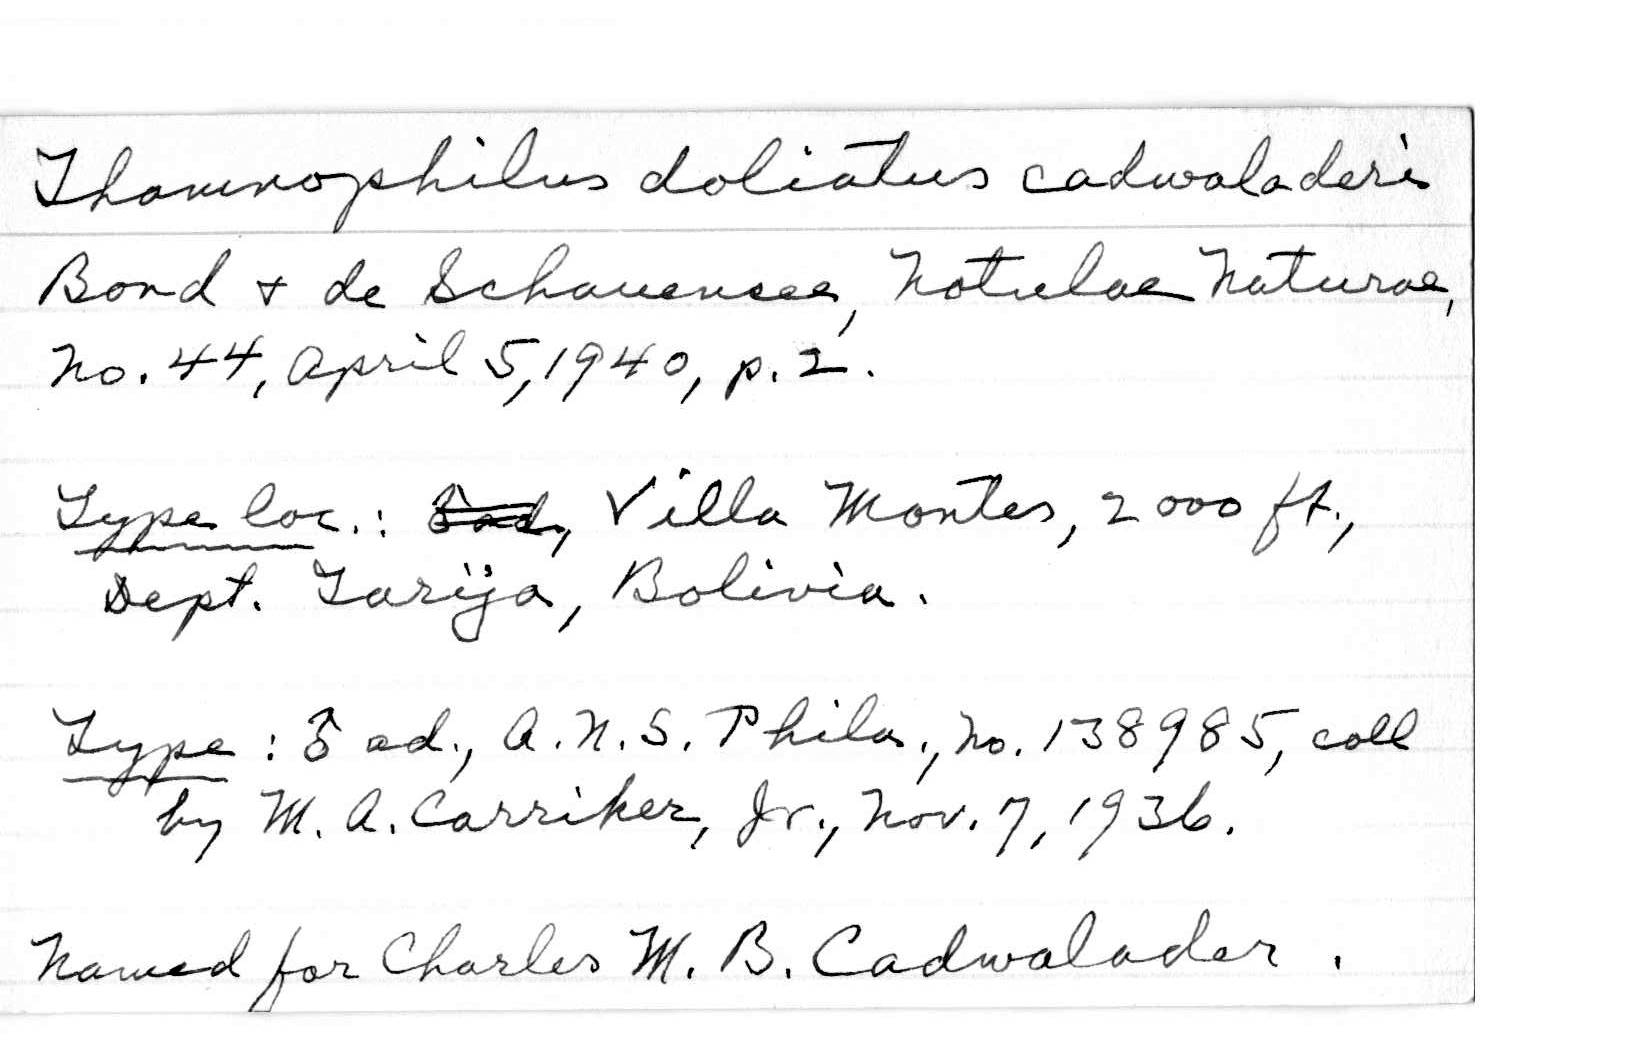 Thamnophilus doliatus cadwaladeri
Bond & de Schauensee, Notulae Naturae,
no. 44, April 5, 1940, p. 2.
Type loc.: Villa Montes, 2000 ft.,
Dept. Tarija, Bolivia.
Type: ♂ ad., A.N.S. Phila., no. 138985, coll
by M. A. Carriker, Jr., Nov. 7, 1936.
Named for Charles M. B. Cadwalader.